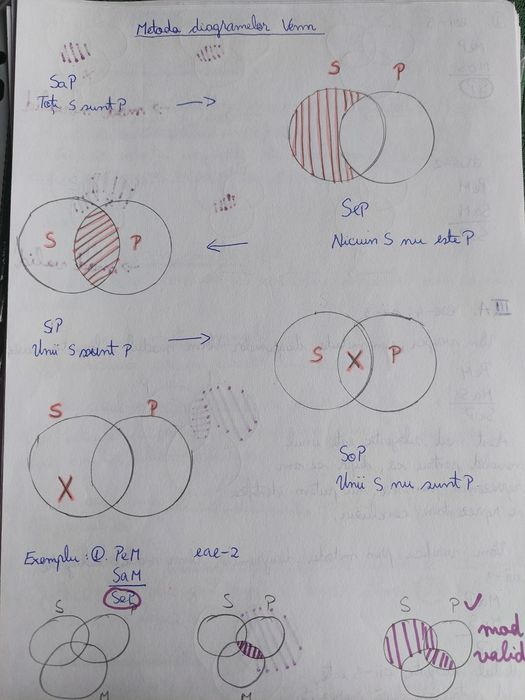 Metoda diagramelor Venn
SaP
Toți S sunt P
S P
SeP
Niciun S nu este P
S P
SiP
Unii S sunt P
S X P
S P
X
SoP
Unii S nu sunt P
Exemplu: ①. PeM eae-2
SaM
SeP
S P
M
S P
M
S P ✓
mod
valid
M